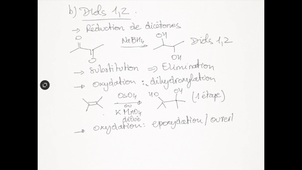 b) Diols 1,2.
→ Réduction de dicétones
O O NaBH4 OH OH Diols 1,2
→ Substitution ⇒ Elimination
→ Oxydation : dihydroxylation
OsO4 HO OH (1 étape)
ou
KMnO4
dilué
→ Oxydation : époxydation / ouvert